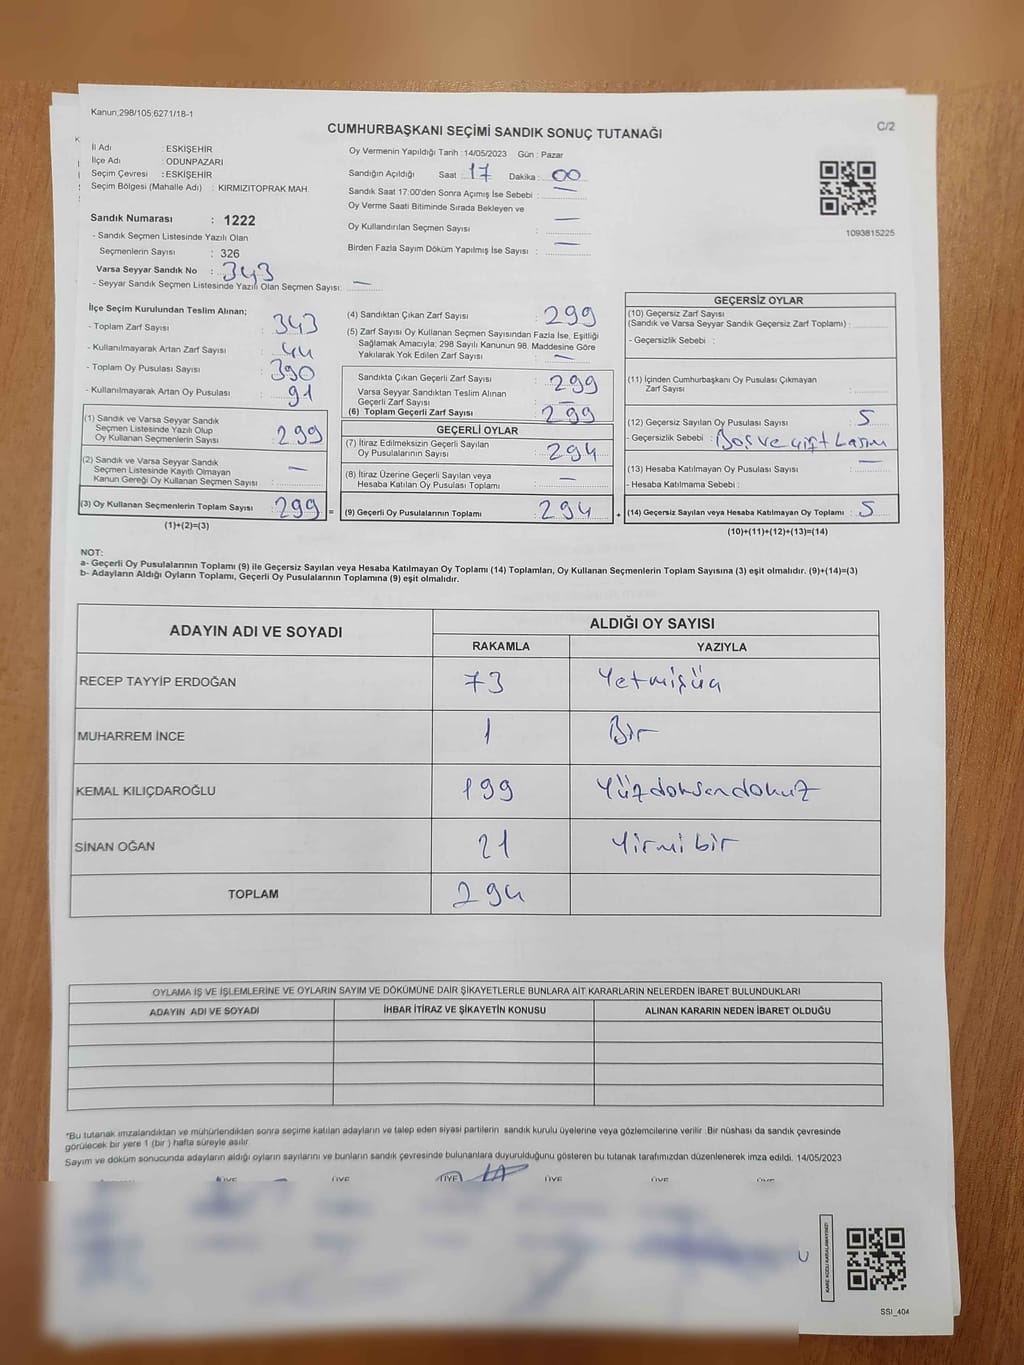 Kanun,298/105;6271/18-1
C/2
CUMHURBAŞKANI SEÇİMİ SANDIK SONUÇ TUTANAĞI
İl Adı : ESKİŞEHİR
İlçe Adı : ODUNPAZARI
Seçim Çevresi : ESKİŞEHİR
Seçim Bölgesi (Mahalle Adı) : KIRMIZITOPRAK MAH.
Sandık Numarası : 1222
- Sandık Seçmen Listesinde Yazılı Olan
Seçmenlerin Sayısı : 326
Varsa Seyyar Sandık No : 343
- Seyyar Sandık Seçmen Listesinde Yazılı Olan Seçmen Sayısı: —
Oy Vermenin Yapıldığı Tarih :14/05/2023 Gün : Pazar
Sandığın Açıldığı Saat : 17 Dakika : 00
Sandık Saat 17:00'den Sonra Açılmış İse Sebebi : —
Oy Verme Saati Bitiminde Sırada Bekleyen ve
Oy Kullandırılan Seçmen Sayısı : —
Birden Fazla Sayım Döküm Yapılmış İse Sayısı : —
1093815225
İlçe Seçim Kurulundan Teslim Alınan;
- Toplam Zarf Sayısı : 343
- Kullanılmayarak Artan Zarf Sayısı : 44
- Toplam Oy Pusulası Sayısı : 390
- Kullanılmayarak Artan Oy Pusulası : 91
(1) Sandık ve Varsa Seyyar Sandık
Seçmen Listesinde Yazılı Olup
Oy Kullanan Seçmenlerin Sayısı : 299
(2) Sandık ve Varsa Seyyar Sandık
Seçmen Listesinde Kayıtlı Olmayan
Kanun Gereği Oy Kullanan Seçmen Sayısı : —
(3) Oy Kullanan Seçmenlerin Toplam Sayısı : 299 =
(1)+(2)=(3)
(4) Sandıktan Çıkan Zarf Sayısı : 299
(5) Zarf Sayısı Oy Kullanan Seçmen Sayısından Fazla İse, Eşitliği
Sağlamak Amacıyla; 298 Sayılı Kanunun 98. Maddesine Göre
Yakılarak Yok Edilen Zarf Sayısı : —
Sandıkta Çıkan Geçerli Zarf Sayısı : 299
Varsa Seyyar Sandıktan Teslim Alınan
Geçerli Zarf Sayısı : —
(6) Toplam Geçerli Zarf Sayısı : 299
GEÇERLİ OYLAR
(7) İtiraz Edilmeksizin Geçerli Sayılan
Oy Pusulalarının Sayısı : 294
(8) İtiraz Üzerine Geçerli Sayılan veya
Hesaba Katılan Oy Pusulası Toplamı : —
(9) Geçerli Oy Pusulalarının Toplamı : 294 +
GEÇERSİZ OYLAR
(10) Geçersiz Zarf Sayısı
(Sandık ve Varsa Seyyar Sandık Geçersiz Zarf Toplamı) :
- Geçersizlik Sebebi :
(11) İçinden Cumhurbaşkanı Oy Pusulası Çıkmayan
Zarf Sayısı :
(12) Geçersiz Sayılan Oy Pusulası Sayısı : 5
- Geçersizlik Sebebi : Boş ve çift basım
(13) Hesaba Katılmayan Oy Pusulası Sayısı : —
- Hesaba Katılmama Sebebi :
(14) Geçersiz Sayılan veya Hesaba Katılmayan Oy Toplamı : 5
(10)+(11)+(12)+(13)=(14)
NOT:
a- Geçerli Oy Pusulalarının Toplamı (9) ile Geçersiz Sayılan veya Hesaba Katılmayan Oy Toplamı (14) Toplamları, Oy Kullanan Seçmenlerin Toplam Sayısına (3) eşit olmalıdır. (9)+(14)=(3)
b- Adayların Aldığı Oyların Toplamı, Geçerli Oy Pusulalarının Toplamına (9) eşit olmalıdır.
ADAYIN ADI VE SOYADI ALDIĞI OY SAYISI
RAKAMLA YAZIYLA
RECEP TAYYİP ERDOĞAN 73 Yetmişüç
MUHARREM İNCE 1 Bir
KEMAL KILIÇDAROĞLU 199 Yüzdoksandokuz
SİNAN OĞAN 21 Yirmi bir
TOPLAM 294
OYLAMA İŞ VE İŞLEMLERİNE VE OYLARIN SAYIM VE DÖKÜMÜNE DAİR ŞİKAYETLERLE BUNLARA AİT KARARLARIN NELERDEN İBARET BULUNDUKLARI
ADAYIN ADI VE SOYADI İHBAR İTİRAZ VE ŞİKAYETİN KONUSU ALINAN KARARIN NEDEN İBARET OLDUĞU
*Bu tutanak imzalandıktan ve mühürlendikten sonra seçime katılan adayların ve talep eden siyasi partilerin sandık kurulu üyelerine veya gözlemcilerine verilir .Bir nüshası da sandık çevresinde
görülecek bir yere 1 (bir ) hafta süreyle asılır.
Sayım ve döküm sonucunda adayların aldığı oyların sayılarını ve bunların sandık çevresinde bulunanlara duyurulduğunu gösteren bu tutanak tarafımızdan düzenlenerek imza edildi. 14/05/2023
ÜYE ÜYE ÜYE ÜYE ÜYE ÜYE
KARE KODU KARALAMAYINIZ!
SSI_404